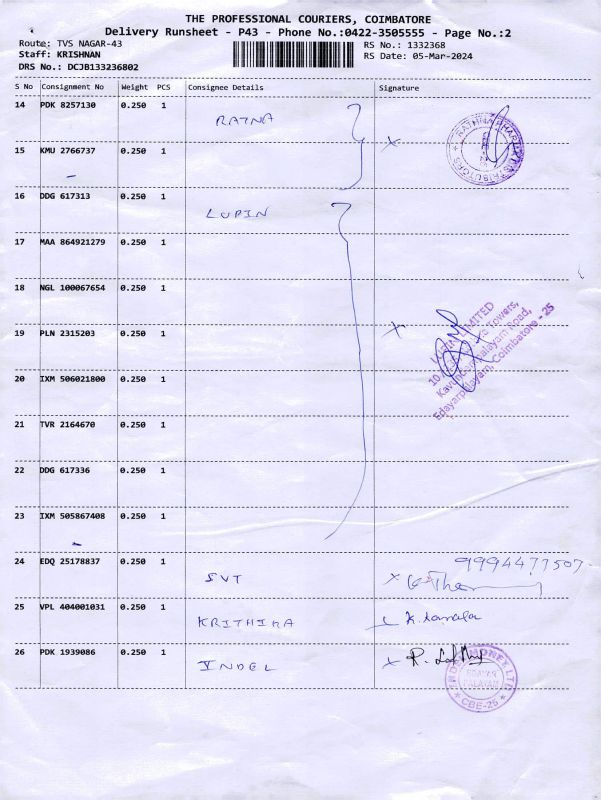 THE PROFESSIONAL COURIERS, COIMBATORE
Delivery Runsheet - P43 - Phone No.:0422-3505555 - Page No.:2
Route: TVS NAGAR-43
Staff: KRISHNAN
DRS No.: DCJB133236802
RS No.: 1332368
RS Date: 05-Mar-2024
S No Consignment No Weight PCS Consignee Details Signature
14 PDK 8257130 0.250 1 RATNA
15 KMU 2766737 0.250 1
16 DDG 617313 0.250 1 LUPIN
17 MAA 864921279 0.250 1
18 NGL 100067654 0.250 1
19 PLN 2315203 0.250 1
LIMITED
Towers,
Road,
Coimbatore - 25
20 IXM 506021800 0.250 1
21 TVR 2164670 0.250 1
22 DDG 617336 0.250 1
23 IXM 505867408 0.250 1
24 EDQ 25178837 0.250 1 SVT 9994477507
25 VPL 404001031 0.250 1 KRITHIKA
26 PDK 1939086 0.250 1 INDEL
CBE-25